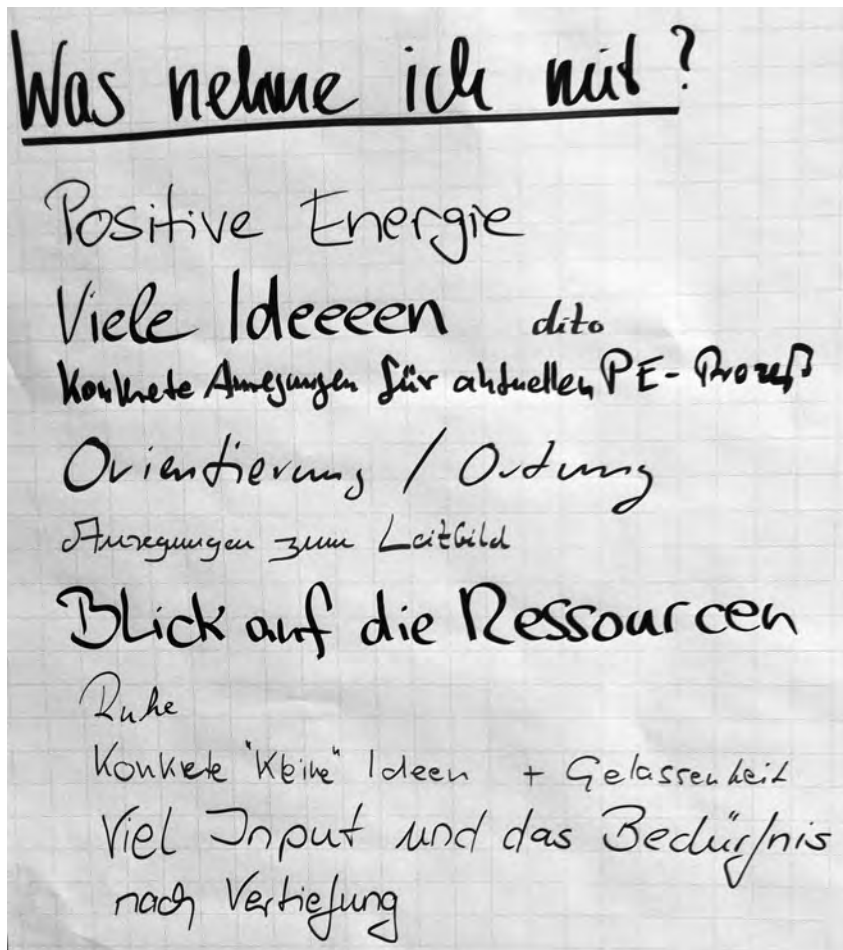 Was nehme ich mit?
Positive Energie
Viele Ideeeen dito
Konkrete Anregungen für aktuellen PE-Prozeß
Orientierung / Ordnung
Anregungen zum Leitbild
Blick auf die Ressourcen
Ruhe
Konkrete "Kleine" Ideen + Gelassenheit
Viel Input und das Bedürfnis
nach Vertiefung